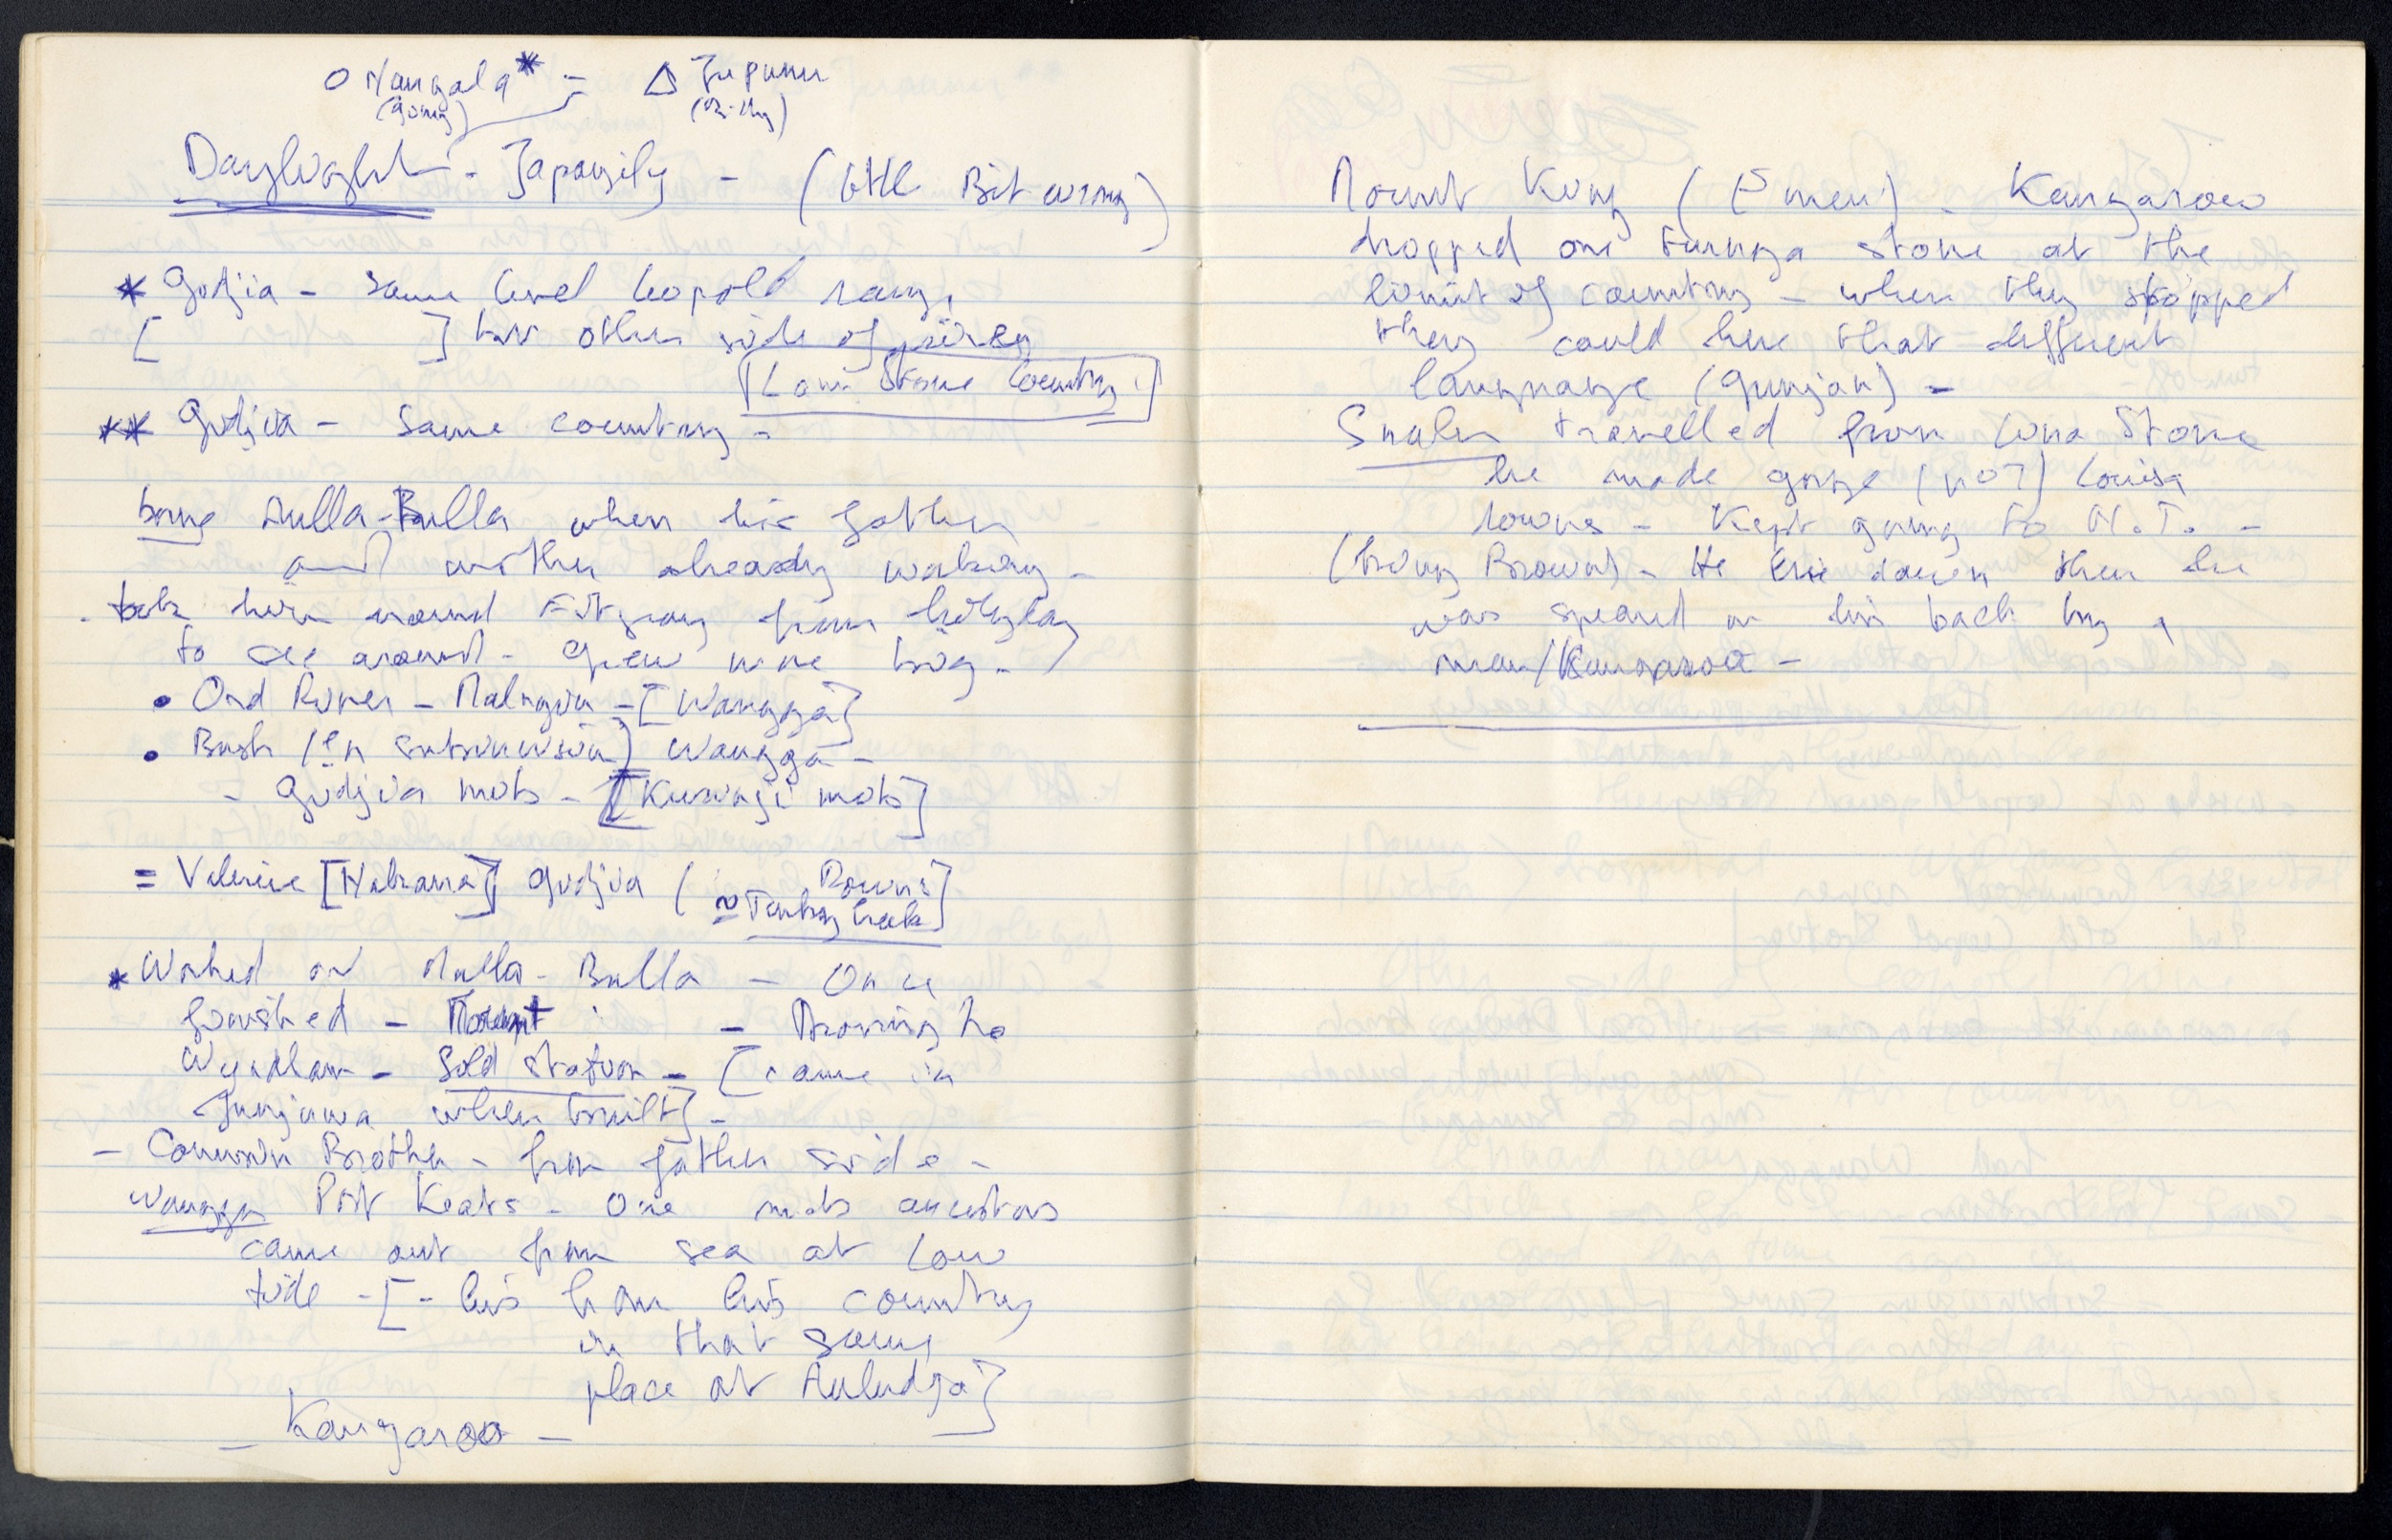 O Nangala* = Δ Jupunu
Daylight - Japangily - (little Bit wrong)
* Gudjia - same level Leopold rang.
[ ] but other side of
[Lam Stone Country]
** Gudjia - Same country -
borne Mulla-Bulla when his father
and mother already waking -
took him around Fitzroy from
to see around - grew more big -
• Ord River - Malngin - [Wangga]
• Bush (in subinwision) Wangga -
- Gudjia mob - [Kurinji mob]
= Valerie [Nakarra] Gudjia ( Downs
Turkey Creek]
* Worked on Mulla-Bulla - Once
finished - Mount - Droving to
Wyndham - Sold Station - [came in
Junjuwa when built] -
- Cousin Brother - from father side -
Wangga Port Keats - One mob ancestors
came out from sea at Low
tide - [ - his from his country
in that same
place at ]
- Kangaroo -
Mount King (5 men) - Kangaroo
dropped one turnga stone at the
limit of country - when they stopped
they could hear that different
language (Gunjan) -
Snake travelled from Lima Stone
he made gorge (not) Louisa
Downs - Kept going to N.T. -
(Bring Brown) - He lie down then he
was speared in his back by a
man/Kangaroo -